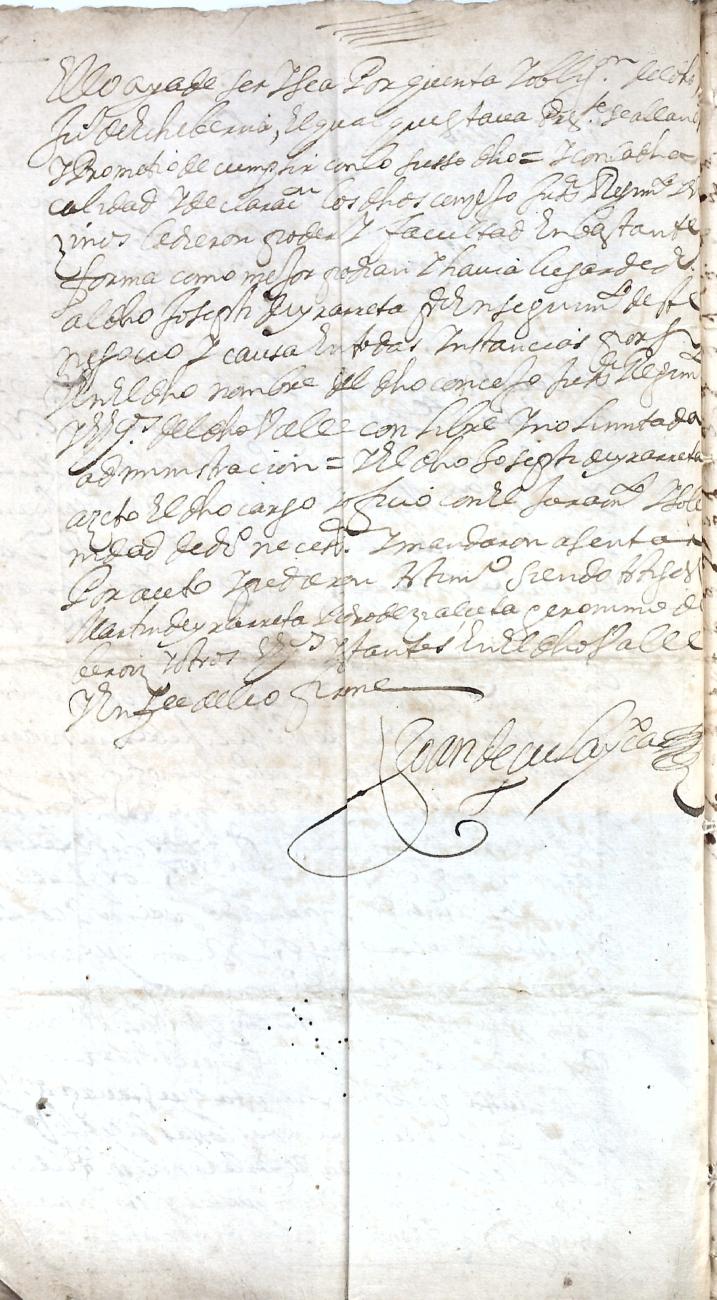 Ello aya de ser y sea Por quenta y oblig.on del dho
Ju.o de Echeberria, El qual que estaua Press.te se allano
y Prometio de cumplir con lo susso dho = y con la dha
calidad y declaraz.on los dhos conzejo just.a Regim.to y ve
zinos le dieron poder y facultad En bastante
forma como mejor podian y hauia lugar de d.ro
al dho Joseph de yrarreta p.a En seguim.to de este
negocio y causa En todas Instancias por si
y En El dho nombre del dho concejo just.a y Regim.to
y vez.os del dho Valle con libre y no limitada
administracion = y El dho Joseph de yrarreta
azeto El dho cargo y ofizio con El juram.to y sole
nidad de d.ro neces.o y mandaron asentar
Por aucto y pidieron testim.o siendo testigos
Martin de yrarreta Pedro de zalieta geronimo de
y otros vez.os y estantes En El dho Valle
y En fee de ello firme
Joan de